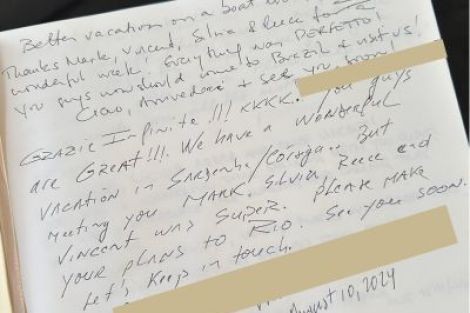 Better vacation on a boat
Thanks Mark, Vincent, Silvia & Reece for a
wonderful week! Everything was PERFETTO!
You guys should come to Brazil & visit us!
Ciao, Arrivederci & see you soon!
GRAZIE Infinite !!! KKKK. You guys
are GREAT!!!. We have a WONDERFUL
VACATION in Sardenha/Córsega. But
meeting you MARK, Silvia, Reece and
Vincent was SUPER. Please MAKE
your plans to RIO. See you soon.
Let's keep in touch.
August 10, 2024